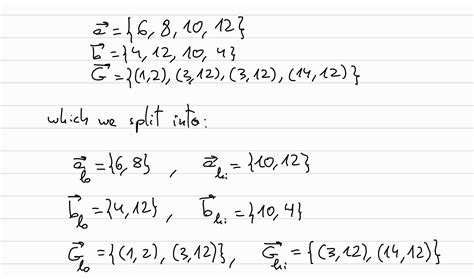 a⃗ = {6, 8, 10, 12}
b⃗ = {4, 12, 10, 4}
G⃗ = {(1,2), (3,12), (3,12), (14,12)}
which we split into:
a⃗_lo = {6,8} , a⃗_hi = {10,12}
b⃗_lo = {4,12} , b⃗_hi = {10,4}
G⃗_lo = {(1,2), (3,12)} , G⃗_hi = {(3,12), (14,12)}